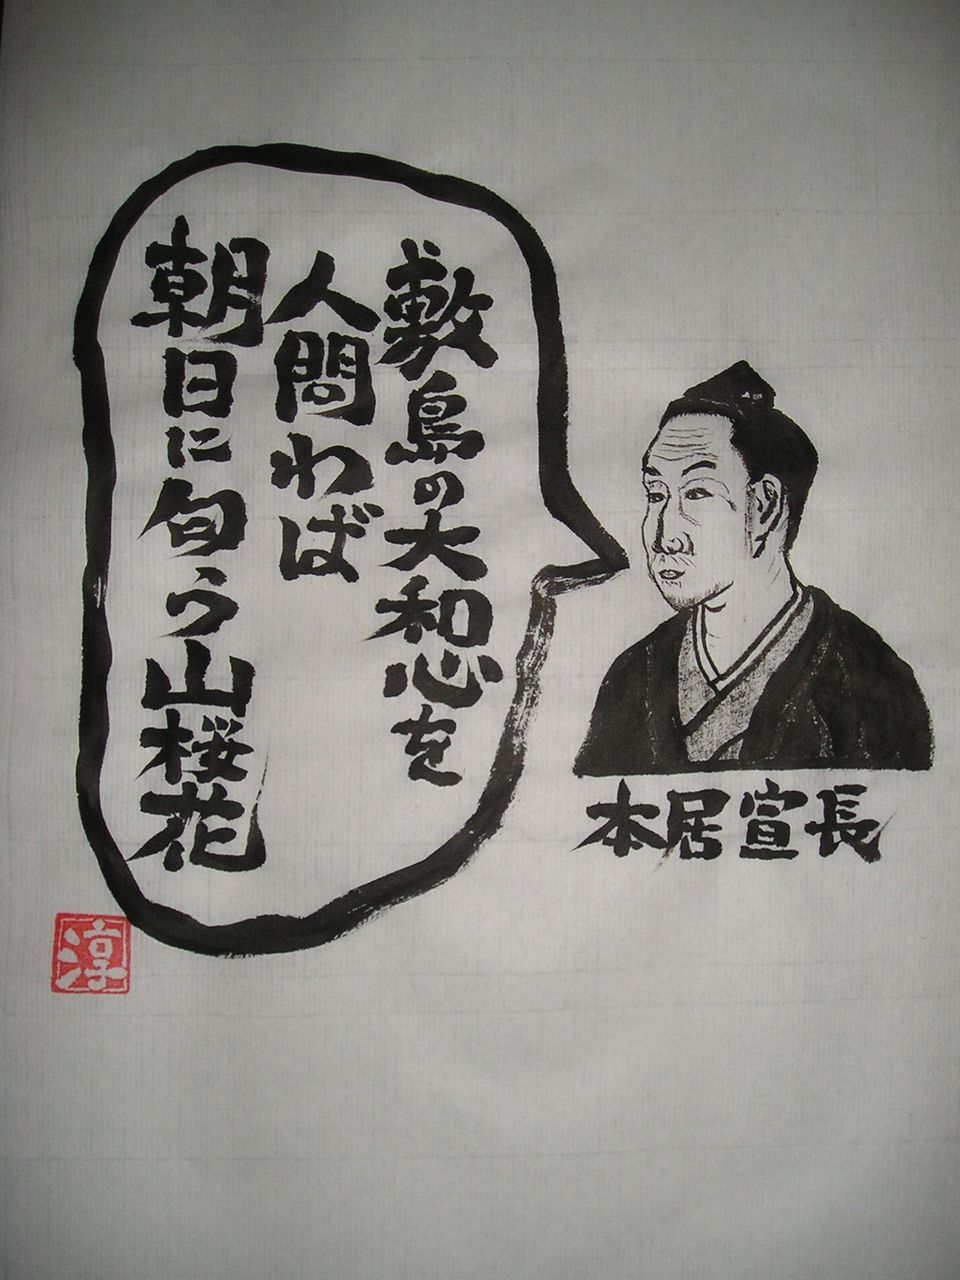 敷島の大和心を
人問わば
朝日に旬う山桜花
本居宣長
淳